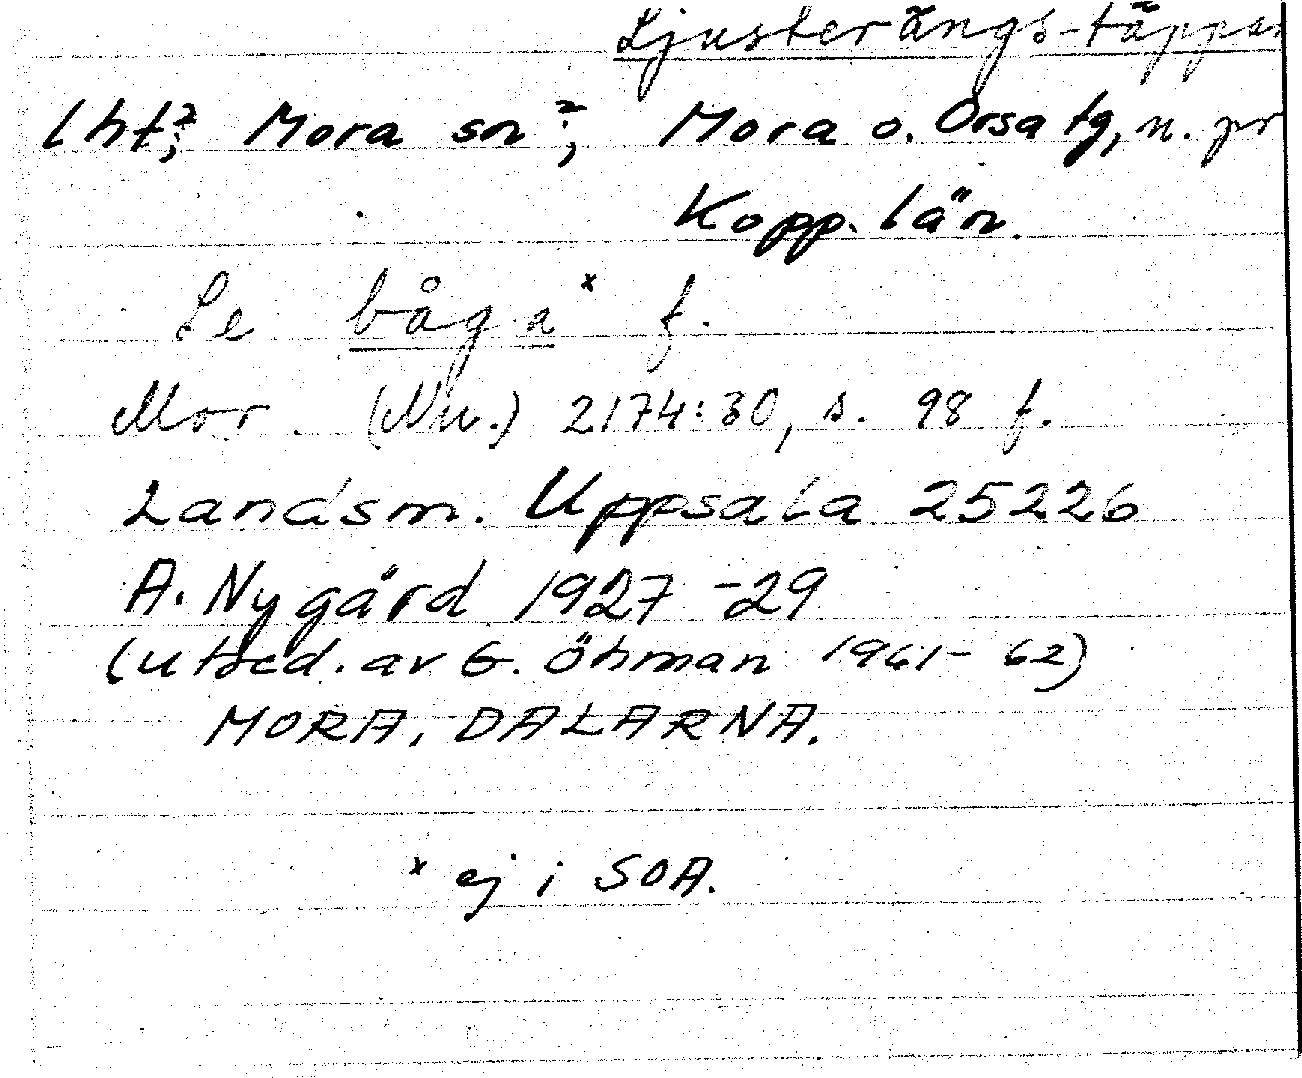 Ljusterängs-täppan
lht?; Mora sn?; Mora o. Orsa tg, n. pr
Kopp. län.
Se båga x f.
Mor. (Nu.) 2174:30, s. 98 f.
Landsm. Uppsala 25226
A. Nygård 1927-29
(utred. av G. Öhman 1961-62)
MORA, DALARNA.
x ej i SOA.